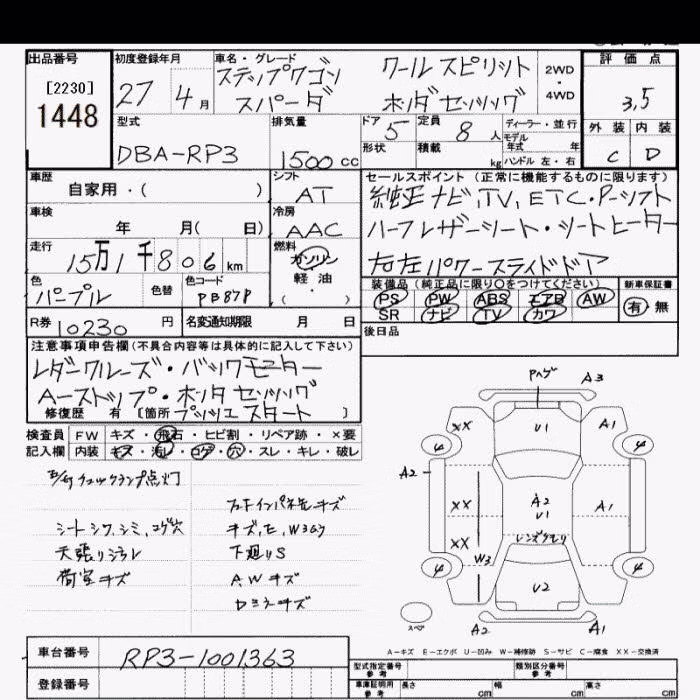 出品番号 初度登録年月 車名・グレード 評価点
[2230]
1448
27 4月
ステップワゴン クールスピリット 2WD
スパーダ ホンダセンシング 4WD
3.5
型式 排気量 ドア 定員 ディーラー・並行 外装 内装
DBA-RP3 1500cc 5 8人 モデル年式 年式
形状 積載 kg ハンドル 左・右 C D
車歴 シフト セールスポイント(正常に機能するものに限ります)
自家用・( ) AT
純正ナビ,TV,ETC・P-シフト
車検 冷房
年 月( 日) AAC
ハーフレザーシート・シートヒーター
走行 燃料
15万1千806km ガソリン
右左パワースライドドア
軽油
・
( )
色 色替 色コード
パープル PB87P
装備品(純正品に限り○をつけてください) 新車保証書
PS PW ABS エアB AW 有・無
SR ナビ TV カワ
R券 10230円 名変通知期限 月 日
後日品
注意事項申告欄(不具合内容等は具体的に記入して下さい)
レダークルーズ・バックモニター
Aーストップ・ホンダセンシング
修復歴 有[箇所 プッシュスタート ]
検査員 FW キズ・飛石・ヒビ割・リペア跡・×要
記入欄 内装 キズ・汚レ・コゲ・穴・スレ・キレ・破レ
チェックランプ点灯
シートシワ,シミ,コゲ穴
天張りシミ
荷室キズ
キズ,E,W3
下廻りS
A.Wキズ
Pヘゲ A3
XX U1 A1
4 4
A2
XX A2 A1
U1
XX レンズクモリ
W3
4 4
U2
スペア A2 A1
A-キズ E-エクボ U-凹み W-補修跡 S-サビ C-腐食 XX-交換済
車台番号 RP3-1001363
型式指定番号 参考 類別区分番号 参考
登録番号
車庫証明用 参考 長さ cm 幅 cm 高さ cm